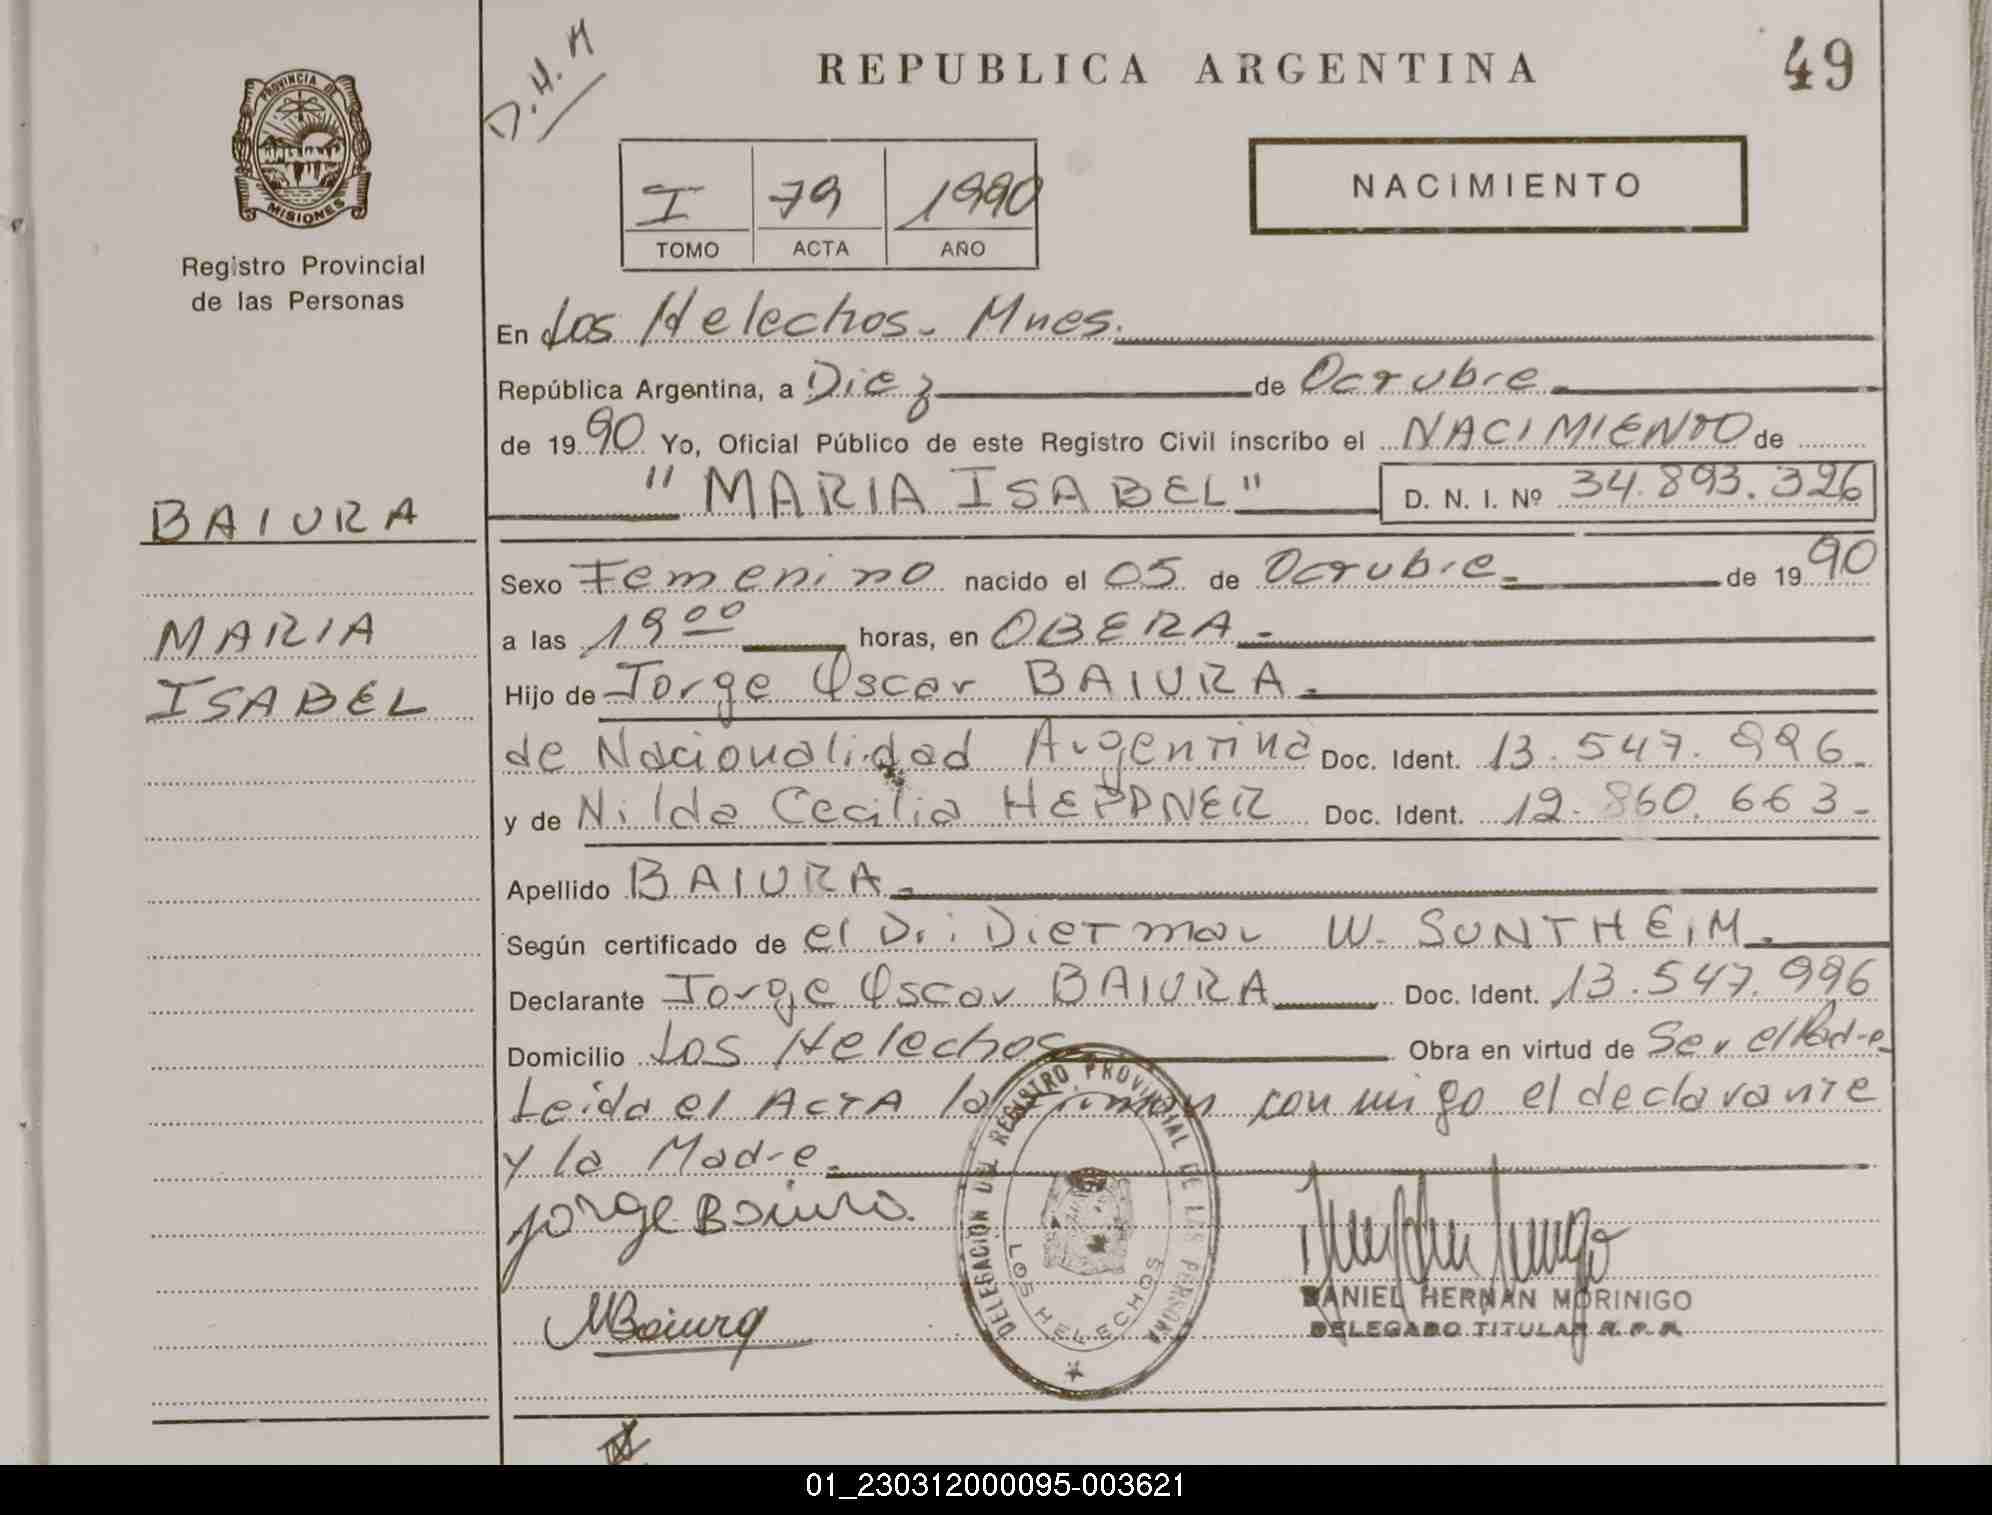 D.H.M
REPUBLICA ARGENTINA
49
PROVINCIA DE
MISIONES
Registro Provincial
de las Personas
I 79 1990
TOMO ACTA AÑO
NACIMIENTO
En Los Helechos. Mnes.
República Argentina, a Diez de Octubre
de 19 90 Yo, Oficial Público de este Registro Civil inscribo el NACIMIENTO de
"MARIA ISABEL" D. N. I. Nº 34.893.326
BAIURA
MARIA
ISABEL
Sexo Femenino nacido el 05 de Octubre de 19 90
a las 19 00 horas, en OBERA
Hijo de Jorge Oscar BAIURA
de Nacionalidad Argentina Doc. Ident. 13.547.996
y de Nilda Cecilia HEPPNER Doc. Ident. 12.860.663
Apellido BAIURA
Según certificado de el Dr: Dietmar W. SUNTHEIM
Declarante Jorge Oscar BAIURA Doc. Ident. 13.547.996
Domicilio Los Helechos Obra en virtud de Ser el Padre
Leida el ACTA la firman conmigo el declarante
y la Madre
Jorge Baiura
NBaiura
DELEGACIÓN DEL REGISTRO PROVINCIAL DE LAS PERSONAS
LOS HELECHOS
DANIEL HERNAN MORINIGO
DELEGADO TITULAR R. P. P.
01_230312000095-003621